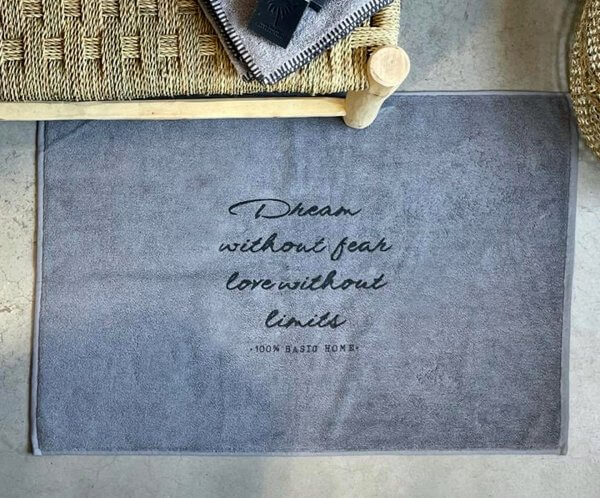 Dream
without fear
love without
limits
·100% BASIC HOME·